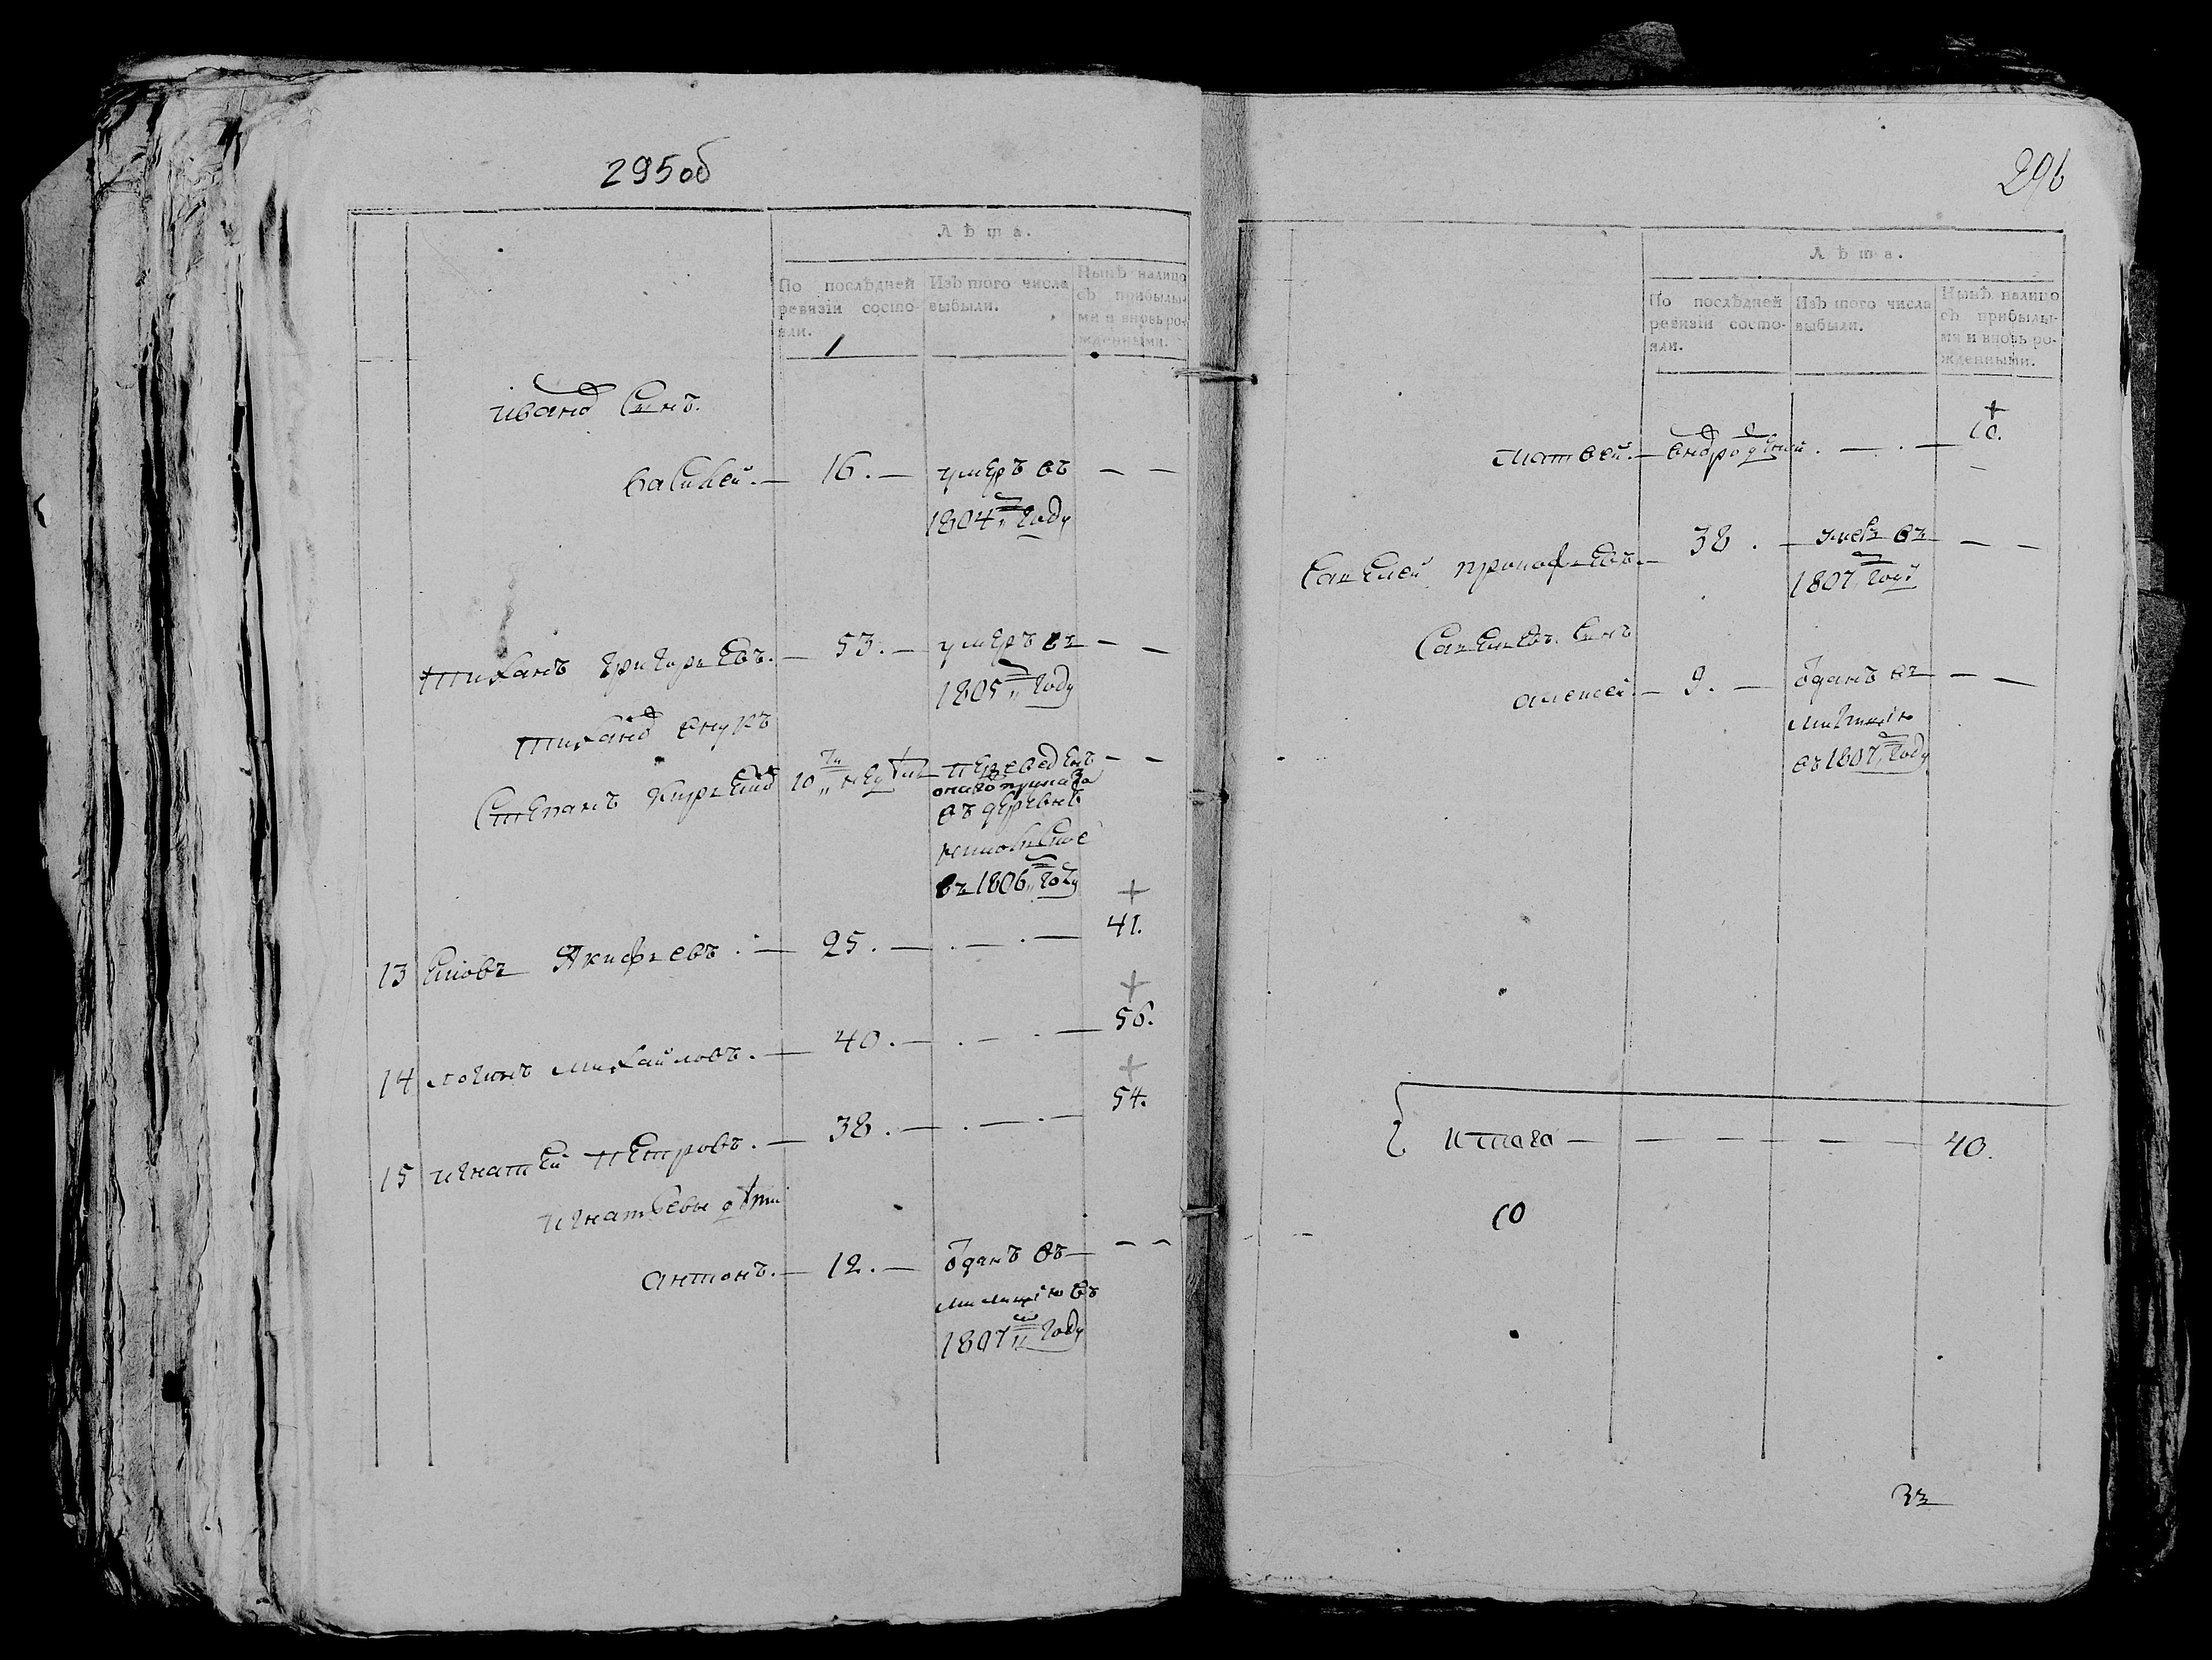 295об
Лѣта.
По послѣдней ревизіи состояли.
Изъ того числа выбыли.
Нынѣ налицо съ прибылыми и вновь рожденными.
Иванов Сынъ.
Василей. — 16. — умеръ въ — —
1804м году
Тиханъ Григорьевъ. — 53. — умеръ въ — —
1805м году
Тиханов внукъ
Степанъ Юрьев 10ти недѣль переведенъ — —
онаго приказа
въ деревню
въ 1806м году
13 Иовъ Якифьевъ . — 25. — . — . — 41.
14 Логинъ Михайловъ. — 40. — . — . — 56.
15 Игнатей Петровъ. — 38. — . — . — 54.
Игнатьевы дѣти
Антонъ. — 12. — отданъ въ — —
милицію въ
1807м году
296
Лѣта.
По послѣдней ревизіи состояли.
Изъ того числа выбыли.
Нынѣ налицо съ прибылыми и вновь рожденными.
Матвей. — . — . — 10.
Савелей Прокофьевъ. — 38. — умеръ въ — —
1807м году
Савельевъ Сынъ
Алексей. — 9. — отданъ въ — —
милицію
въ 1807м году
Итого — — — — — 40.
10